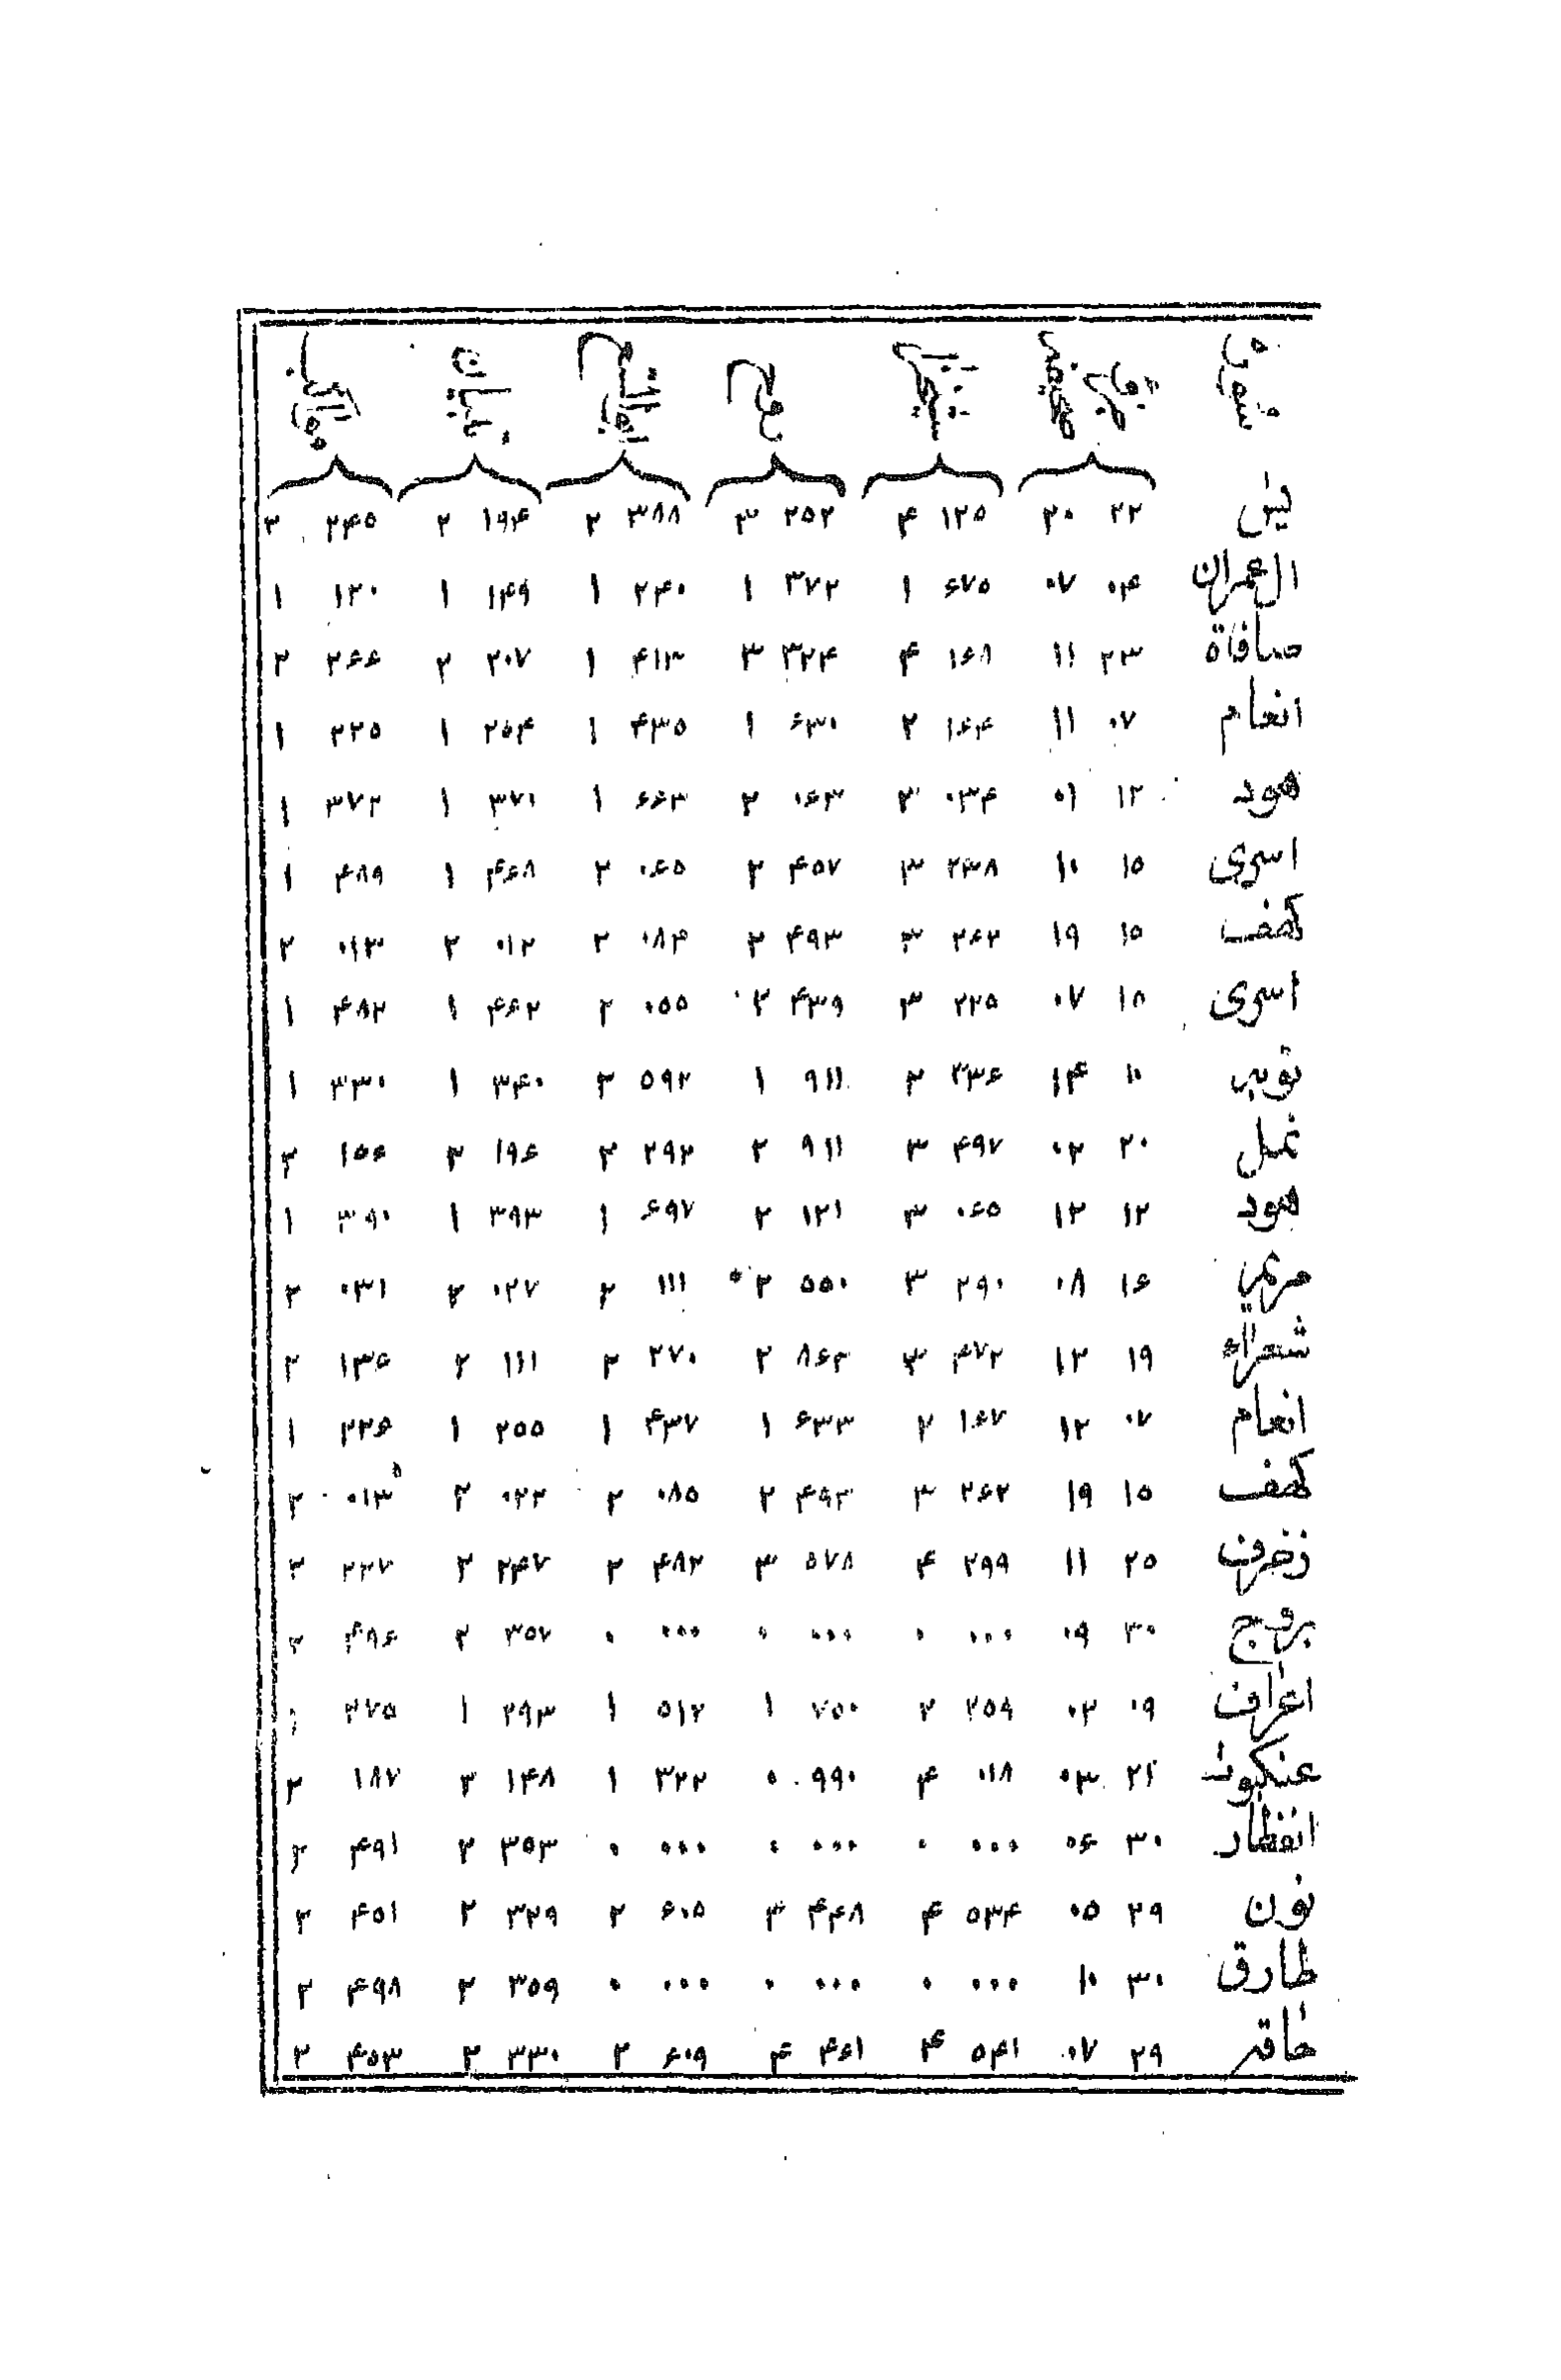 يس ۲۲ ۲۰ ۱۲۵ ۴ ۲۵۲ ۳ ۳۸۸ ۲ ۱۹۴ ۲ ۲۴۵ ۲
ال عمران ۰۴ ۰۷ ۶۷۵ ۱ ۳۷۲ ۱ ۲۴۰ ۱ ۱۴۹ ۱ ۱۲۰ ۱
صافاة ۲۳ ۱۱ ۱۶۸ ۴ ۳۲۴ ۳ ۴۱۳ ۱ ۲۰۷ ۲ ۲۶۶ ۲
انعام ۰۷ ۱۱ ۱۶۴ ۲ ۶۳۰ ۱ ۴۳۵ ۱ ۲۵۴ ۱ ۲۲۵ ۱
هود ۱۲ ۰۱ ۰۳۴ ۳ ۰۶۳ ۲ ۶۶۳ ۱ ۳۷۰ ۱ ۳۷۲ ۱
اسری ۱۵ ۱۰ ۲۳۸ ۳ ۴۵۷ ۲ ۰۶۵ ۲ ۴۶۸ ۱ ۴۸۹ ۱
کهف ۱۵ ۱۹ ۲۶۲ ۳ ۴۹۳ ۲ ۰۸۴ ۲ ۰۱۲ ۲ ۰۱۳ ۲
اسری ۱۸ ۰۷ ۲۲۵ ۳ ۴۳۹ ۲ ۰۵۵ ۲ ۴۶۲ ۱ ۴۸۲ ۱
توبه ۱۰ ۱۴ ۳۳۶ ۲ ۹۱۱ ۱ ۵۹۲ ۲ ۳۴۰ ۱ ۳۳۰ ۱
نمل ۲۰ ۰۲ ۴۹۷ ۳ ۹۱۱ ۲ ۲۹۲ ۲ ۱۹۶ ۲ ۱۵۶ ۲
هود ۱۲ ۱۲ ۰۶۵ ۳ ۱۲۱ ۲ ۶۹۷ ۱ ۳۹۳ ۱ ۳۹۰ ۱
مریم ۱۶ ۰۸ ۲۹۰ ۳ ۵۵۰ ۲ ۱۱۱ ۲ ۰۲۷ ۲ ۰۳۱ ۲
شعراء ۱۹ ۱۲ ۴۷۲ ۳ ۸۶۲ ۲ ۲۷۰ ۲ ۱۱۱ ۲ ۱۳۶ ۲
انعام ۰۷ ۱۲ ۱۶۷ ۲ ۶۳۳ ۱ ۴۳۷ ۱ ۲۵۵ ۱ ۲۲۶ ۱
کهف ۱۵ ۱۹ ۲۶۲ ۳ ۴۹۳ ۲ ۰۸۵ ۲ ۰۲۲ ۲ ۰۱۳ ۲
زخرف ۲۵ ۱۱ ۲۹۹ ۴ ۵۷۸ ۳ ۴۸۲ ۲ ۲۴۷ ۲ ۲۲۷ ۲
بروج ۳۰ ۰۹ ۰۰۰ ۰ ۰۰۰ ۰ ۰۰۰ ۰ ۳۵۷ ۲ ۴۹۶ ۲
اعراف ۰۹ ۰۲ ۲۵۹ ۲ ۷۵۰ ۱ ۵۱۲ ۱ ۲۹۳ ۱ ۲۷۵ ۱
عنکبوت ۲۱ ۰۳ ۰۱۸ ۴ ۹۹۰ ۰ ۳۲۲ ۱ ۱۴۸ ۲ ۱۸۷ ۲
انفطار ۳۰ ۰۶ ۰۰۰ ۰ ۰۰۰ ۰ ۰۰۰ ۰ ۳۵۳ ۲ ۴۹۱ ۲
نون ۲۹ ۰۵ ۵۳۴ ۴ ۴۴۸ ۳ ۶۰۵ ۲ ۳۲۹ ۲ ۴۵۱ ۲
طارق ۳۰ ۱۰ ۰۰۰ ۰ ۰۰۰ ۰ ۰۰۰ ۰ ۳۵۹ ۲ ۴۹۸ ۲
حاقه ۲۹ ۰۷ ۵۴۱ ۴ ۴۶۱ ۴ ۶۰۹ ۲ ۳۳۰ ۲ ۴۵۳ ۲